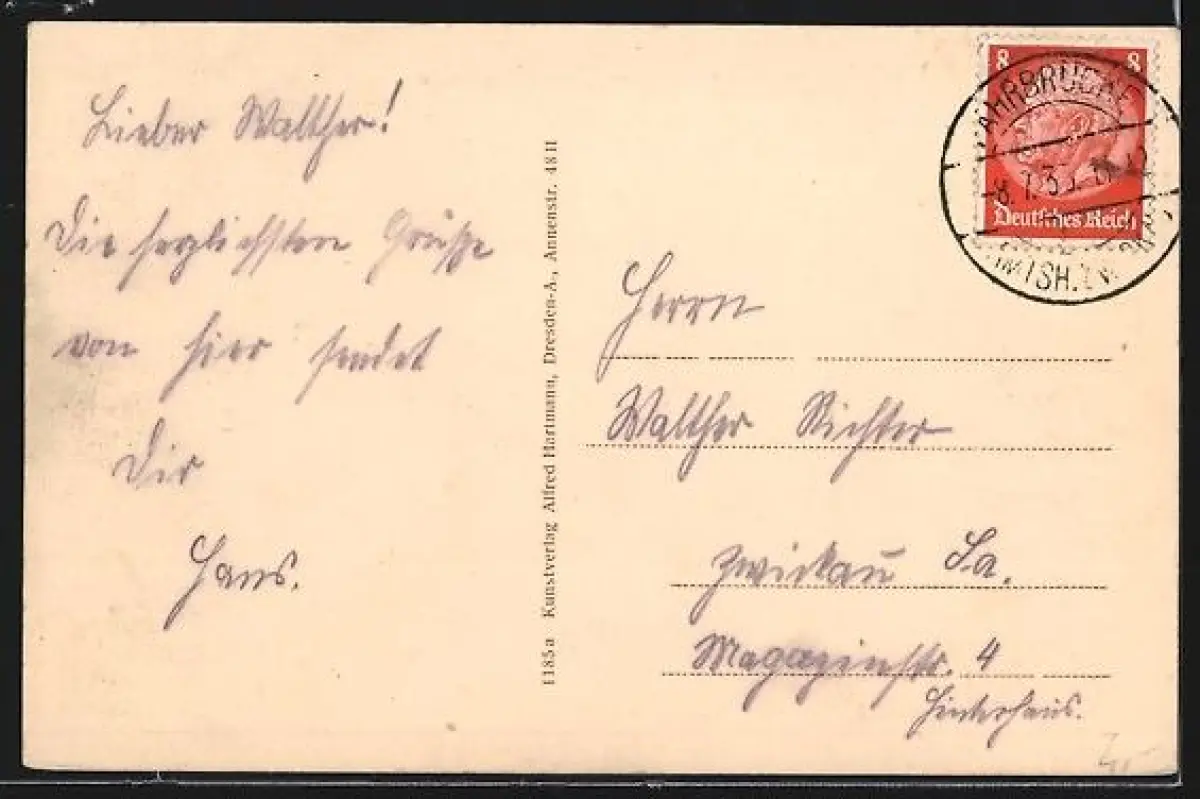 Lieber Walther!
Die herzlichsten Grüße
von hier sendet
Dir
Hans.
1185a Kunstverlag Alfred Hartmann, Dresden-A., Annenstr. 48 II
8 8
Deutsches Reich
FAHRBRÜCKE
Herrn
Walther Richter
Zwickau Sa.
Magazinstr. 4
Hinterhaus.